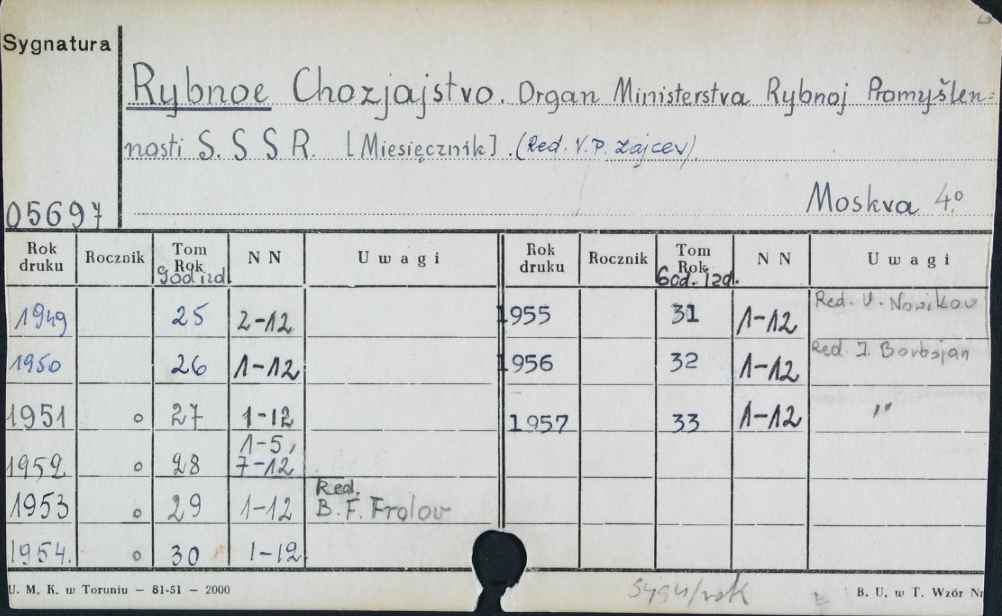 Sygnatura
Rybnoe Chozjajstvo. Organ Ministerstva Rybnoj Promyšlen=
nosti S. S S R. [Miesięcznik]. (Red. V. P. Zajcev)
05697 Moskva 4.º
Rok druku Rocznik Tom Rok god izd. N N Uwagi Rok druku Rocznik Tom Rok God. izd. N N Uwagi
1949 25 2-12 1955 31 1-12 Red. V. Novikov
1950 26 1-12 1956 32 1-12 Red. I.
1951 o 27 1-12 1957 33 1-12 "
1952 o 28 1-5, 7-12
1953 o 29 1-12 Red. B. F. Frolov
1954. o 30 1-12.
U. M. K. w Toruniu — 81-51 — 2000 B. U. w T. Wzór Nr